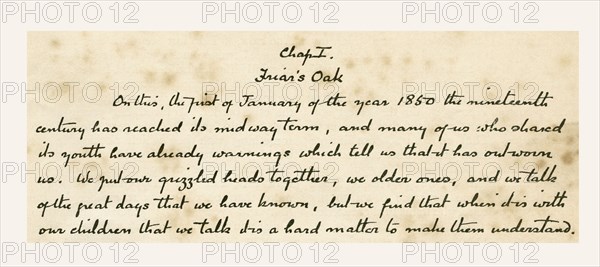 PHOTO12 PHOTO12 PHOTO12
Chap I.
Friar's Oak
On this, the first of January of the year 1850 the nineteenth
century has reached its midway term, and many of us who shared
its youth have already warnings which tell us that it has outworn
us. We put our grizzled heads together, we older ones, and we talk
of the great days that we have known, but we find that when it is with
our children that we talk it is a hard matter to make them understand.